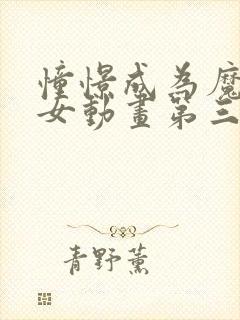 憧憬成為魔
女動畫第三
青野薰